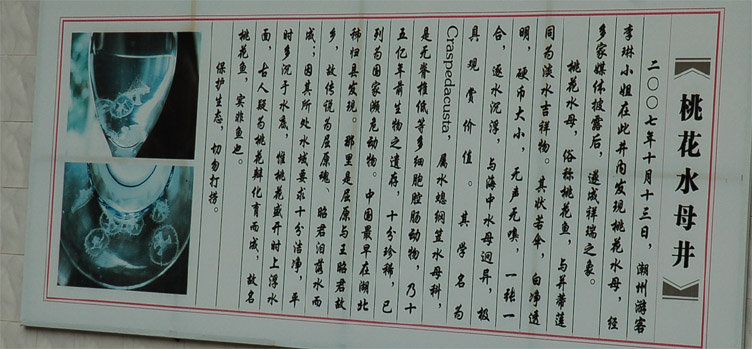 桃花水母井
二〇〇七年十月十三日，潮州游客
李琳小姐在此井内发现桃花水母，经
多家媒体披露后，遂成祥瑞之象。
桃花水母，俗称桃花鱼，与并蒂莲
同为淡水吉祥物。其状若伞，白净透
明，硬币大小，无声无嗅，一张一
合，逐水沉浮，与海中水母迥异，极
具观赏价值。其学名为
Craspedacusta，属水螅纲笠水母科，
是无脊椎低等多细胞腔肠动物，乃十
五亿年前生物之遗存，十分珍稀，已
列为国家濒危动物。中国最早在湖北
秭归县发现。那里是屈原与王昭君故
乡，故传说为屈原魂、昭君泪落水而
成；因其所处水域要求十分洁净，平
时多沉于水底，惟桃花盛开时上浮水
面，古人疑为桃花瓣化育而成，故名
桃花鱼，实非鱼也。
保护生态，切勿打捞。